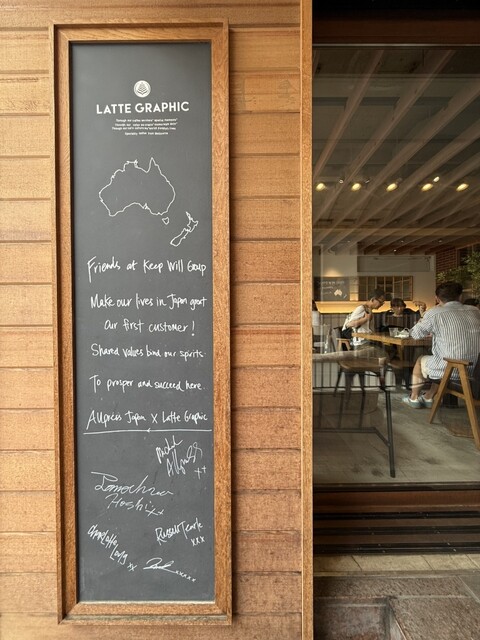 LATTE GRAPHIC
Friends at Keep Will Group
Make our lives in Japan great
Our first customer!
Shared values bind our spirits
To prosper and succeed here
Allpress Japan x Latte Graphic
Michael
Allpress
xx
Tomohiro
Hoshi xx
Russell Tearle
xxx
Charlotte
Long
xx
xxxxx